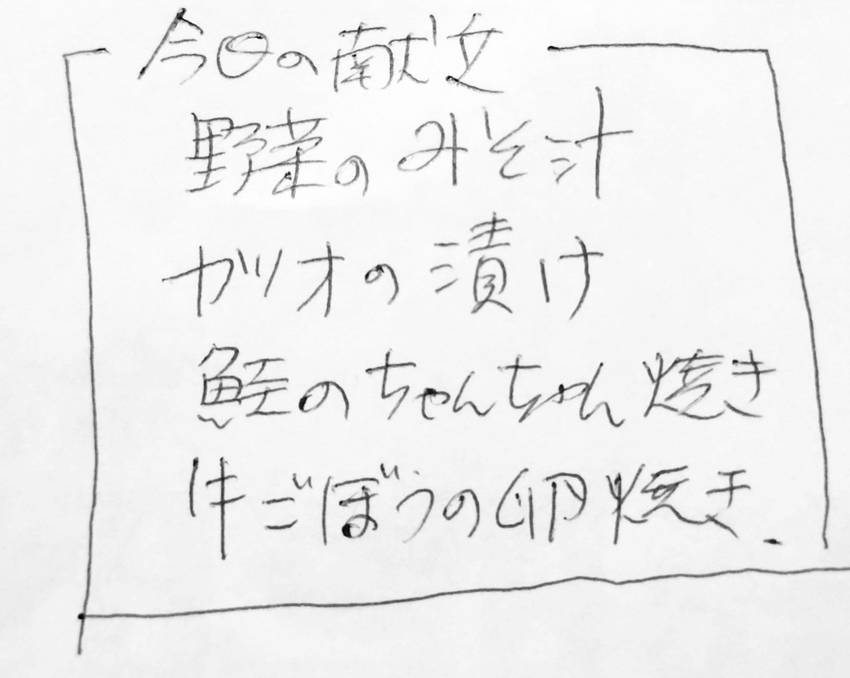 今日の献文
野菜のみそ汁
ガツオの漬け
鮭のちゃんちゃん焼き
牛ごぼうの卵焼き